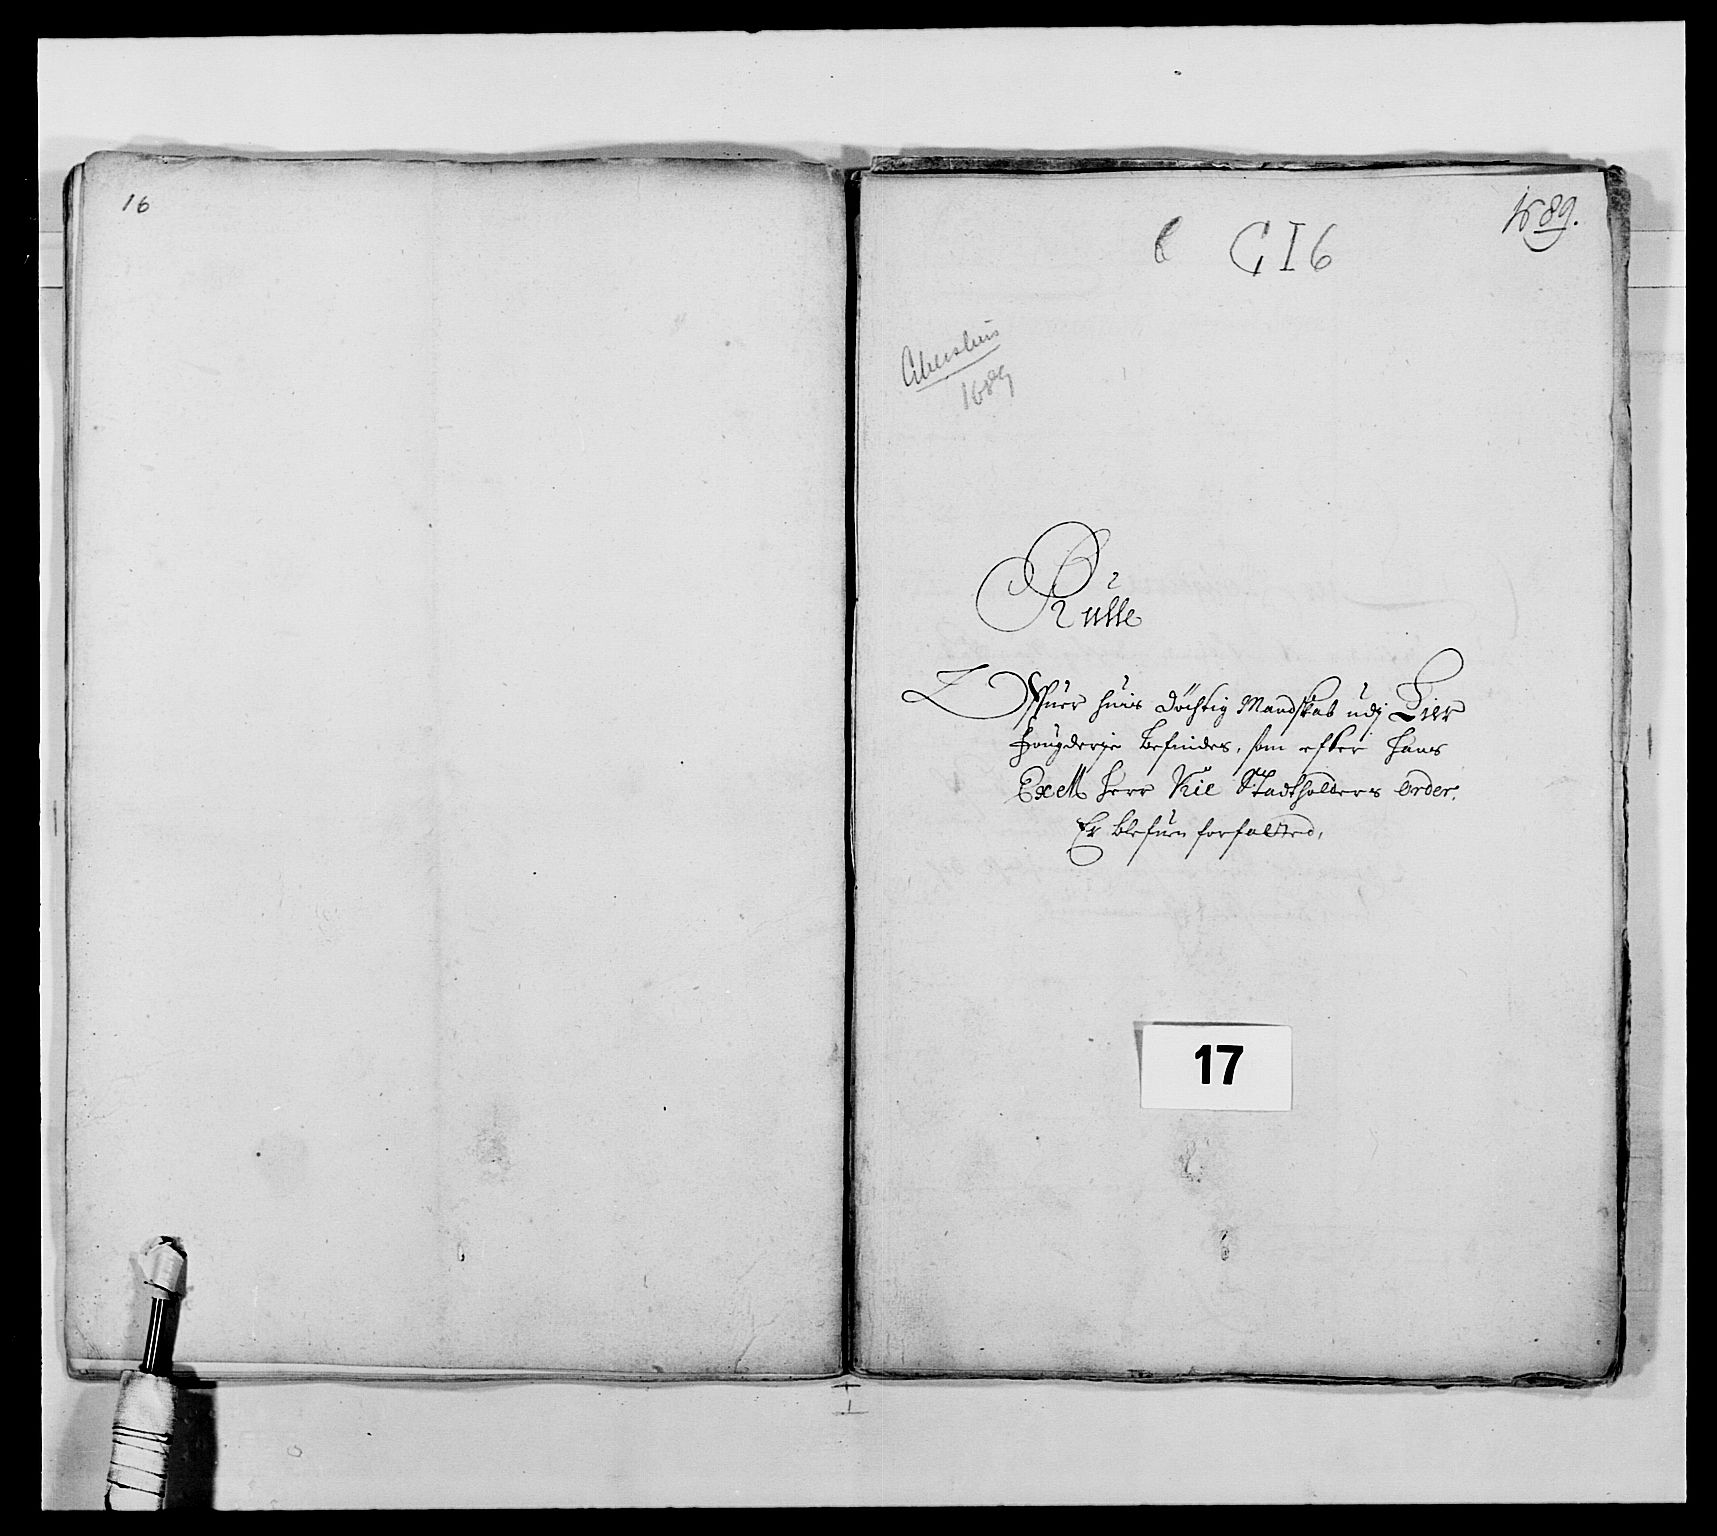 16
1689.
C I 6
Akershus
1689
Rulle
Offuer huis döchtig Mandskab udj Lier
fougderje befindes, som efter hans
Excell: Herr Vice Stadtholders order,
Er blefuen forfatted,
17